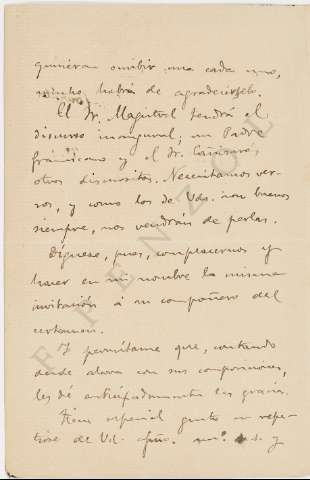 quieran escribir una cada uno,
mucho habrá de agradecérselo.
El Sr. Magistral tendrá el
discurso inaugural; un Padre
fránciscano y el Sr. Cañizares,
otros discursitos. Necesitamos ver-
sos, y como los de Vds. son buenos
siempre, nos vendrán de perlas.
Dígnese, pues, complacernos y
hacer en mi nombre la misma
invitación á su compañero del
certamen.
Y permítame que, contando
desde ahora con sus composiciones,
les dé anticipadamente las gracias.
Tiene especial gusto en repe-
tirse de Vd. afmo. s. y
F. PENZOL